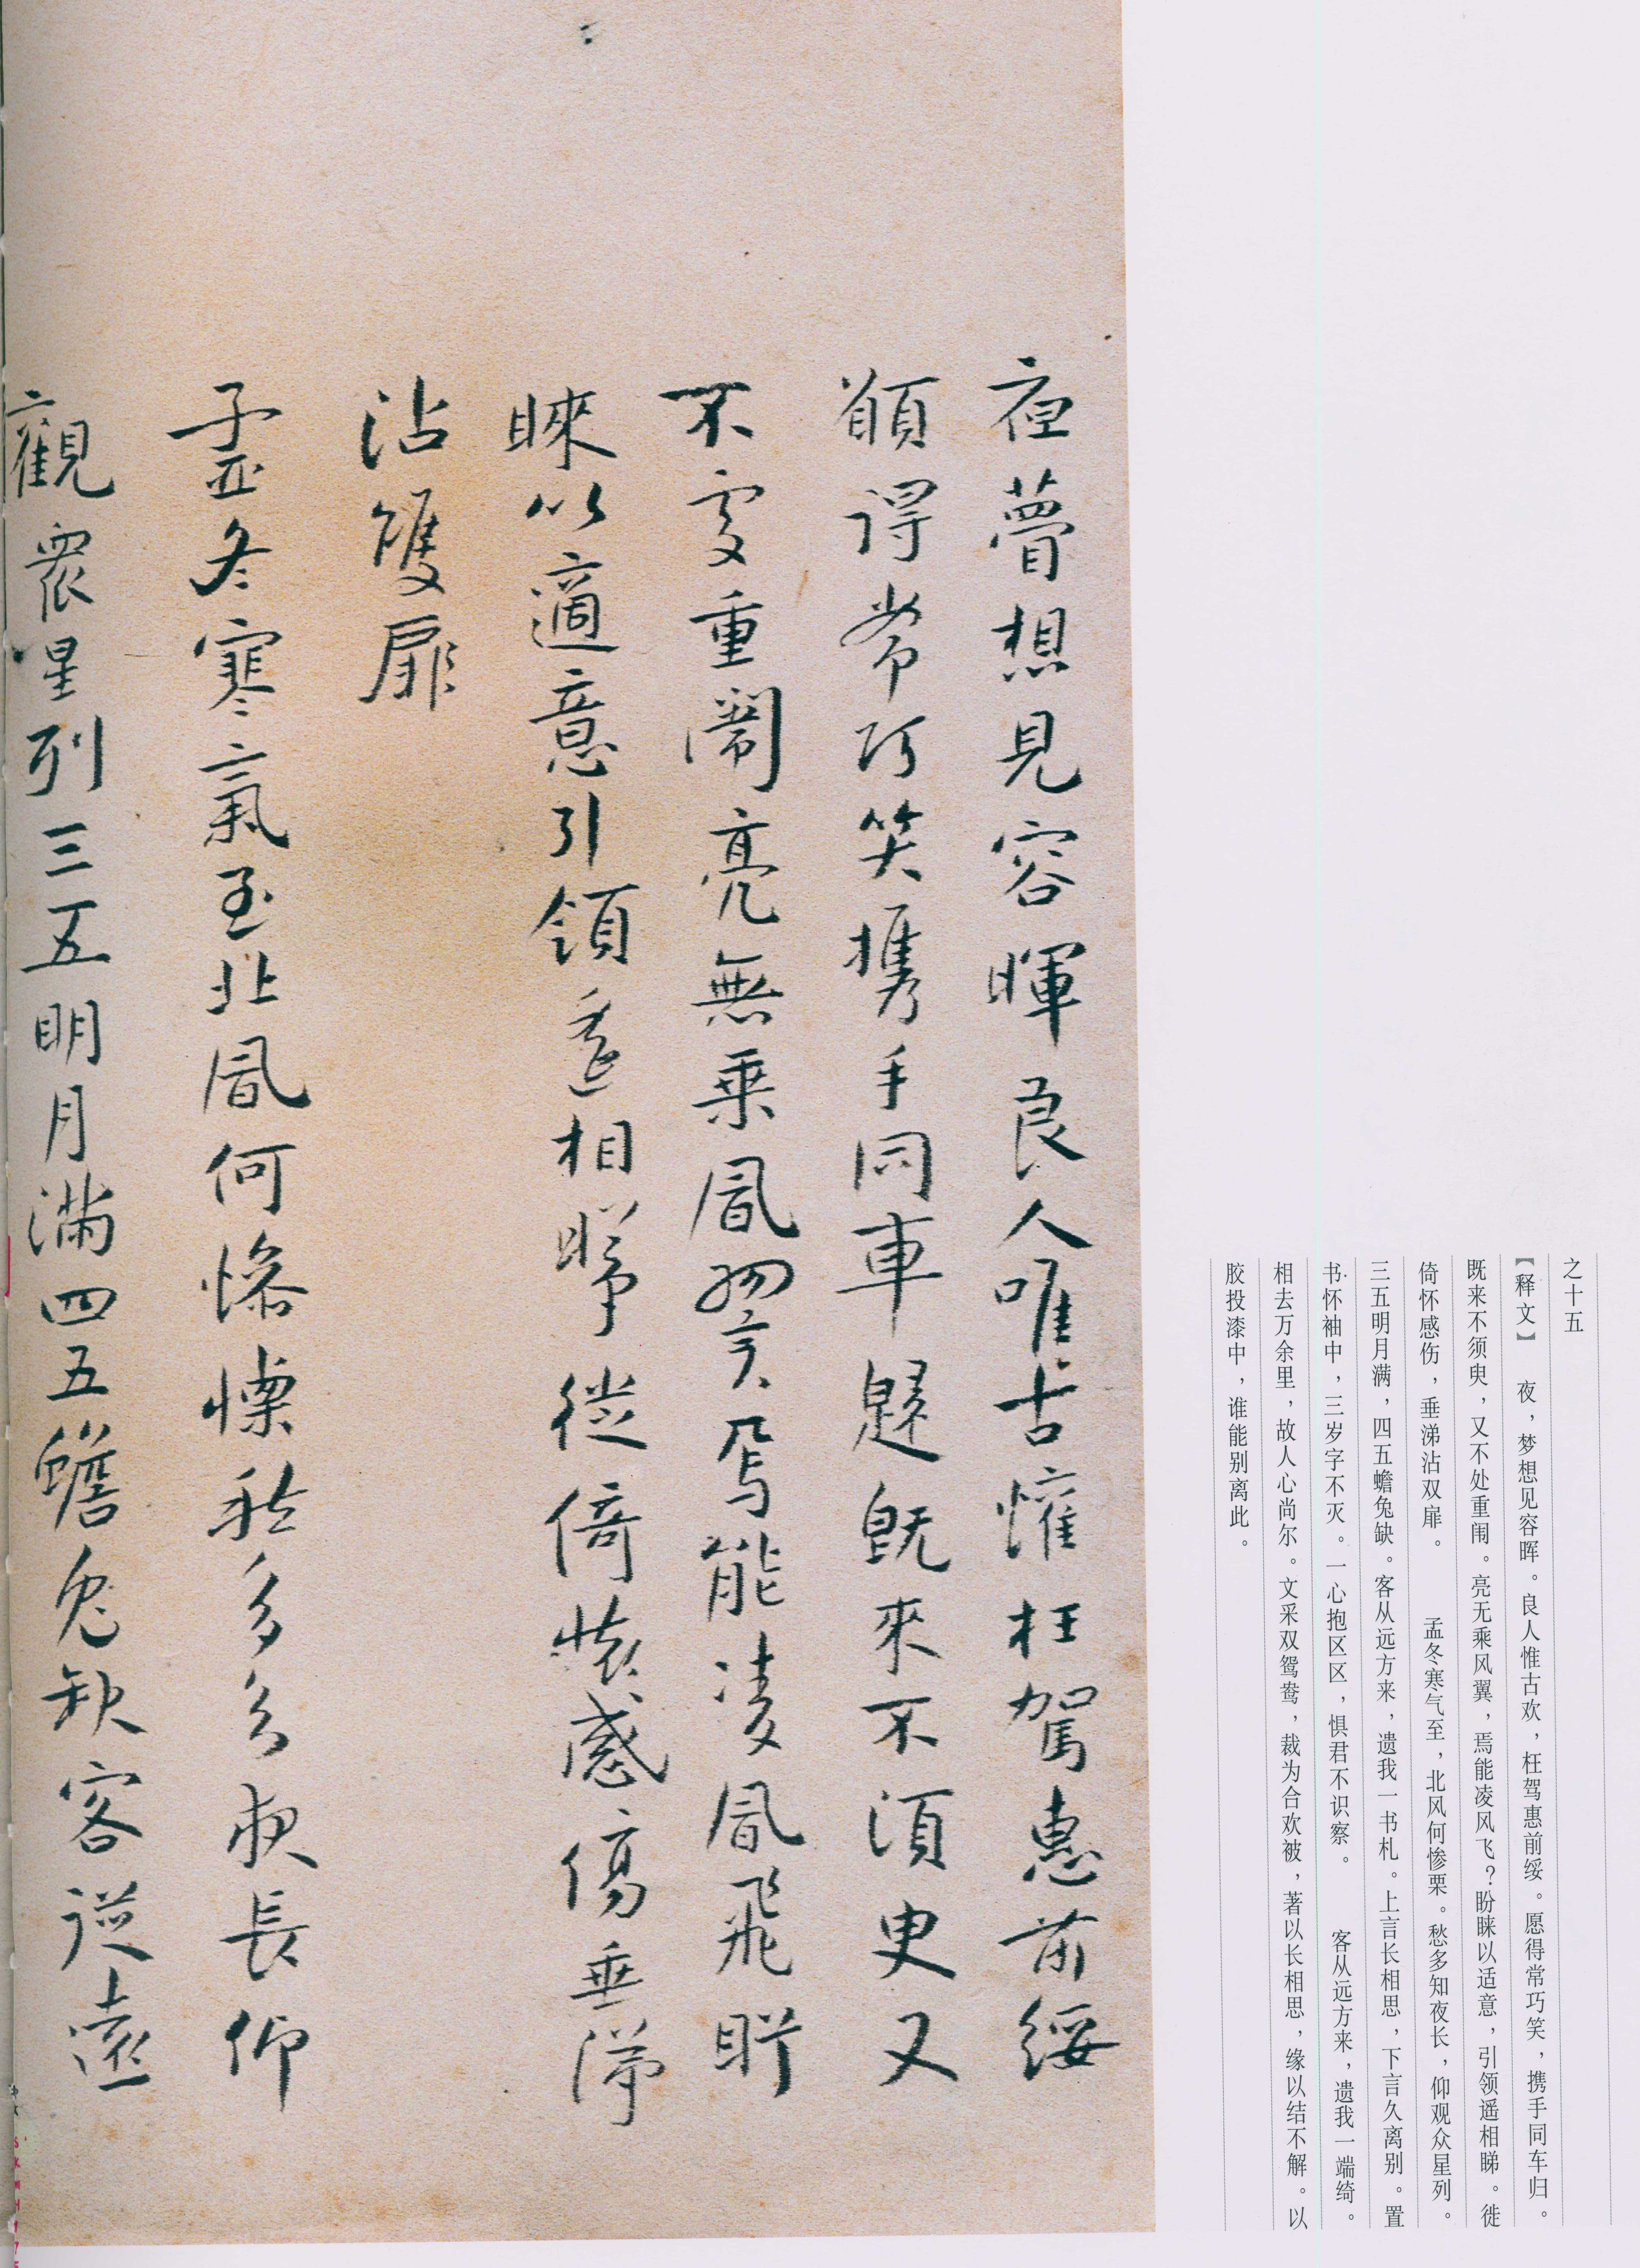 之十五
【释文】　夜，梦想见容晖。良人惟古欢，枉驾惠前绥。愿得常巧笑，携手同车归。
既来不须臾，又不处重闱。亮无乘风翼，焉能凌风飞？盼睐以适意，引领遥相睎。徙
倚怀感伤，垂涕沾双扉。　　孟冬寒气至，北风何惨栗。愁多知夜长，仰观众星列。
三五明月满，四五蟾兔缺。客从远方来，遗我一书札。上言长相思，下言久离别。置
书怀袖中，三岁字不灭。一心抱区区，惧君不识察。　　客从远方来，遗我一端绮。
相去万余里，故人心尚尔。文采双鸳鸯，裁为合欢被，著以长相思，缘以结不解。以
胶投漆中，谁能别离此。
夜夢想見容暉良人唯古懽枉駕惠前綏
願得常巧笑攜手同車歸既來不須臾又
不處重闈亮無乘風翼焉能凌風飛眄
睞以適意引領遙相睎徙倚懷感傷垂涕
沾雙扉
孟冬寒氣至北風何慘慄愁多知夜長仰
觀衆星列三五明月滿四五蟾兔缺客從遠